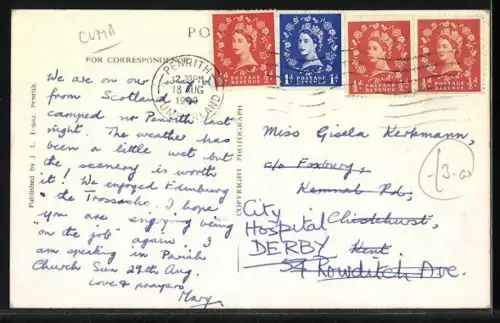 CUMB
PO
FOR CORRESPONDENCE
PENRITH
12.30PM
18 AUG
CUMBERLAND
½d POSTAGE REVENUE ½d
1d POSTAGE REVENUE 1d
½d POSTAGE REVENUE ½d
½d POSTAGE REVENUE ½d
We are on our way
from Scotland
camped nr Penrith last
night. The weather has
been a little wet but
the scenery is worth
it! We enjoyed Edinburg
& the Trossachs. I hope
you are enjoying being
"on the job" again. I
am speaking in Parish
Church Sun 29th Aug.
Love & prayers
Mary
Published by J. L. Penrith.
COPYRIGHT PHOTOGRAPH
Miss Gisela
c/o Foxburg,
Kemnal Rd,
Chislehurst,
Kent.
City
Hospital
DERBY
54 Rowditch Ave.
£3.00